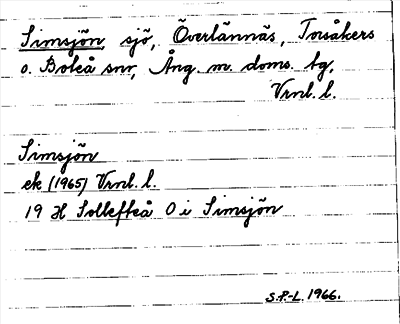 Simsjön, sjö, Överlännäs, Torsåkers
o. Boteå snr, Ång. m. doms. tg,
Vrnl. l.
Simsjön
ek (1965) Vrnl. l.
19 H Sollefteå O i Simsjön
S.P-L. 1966.